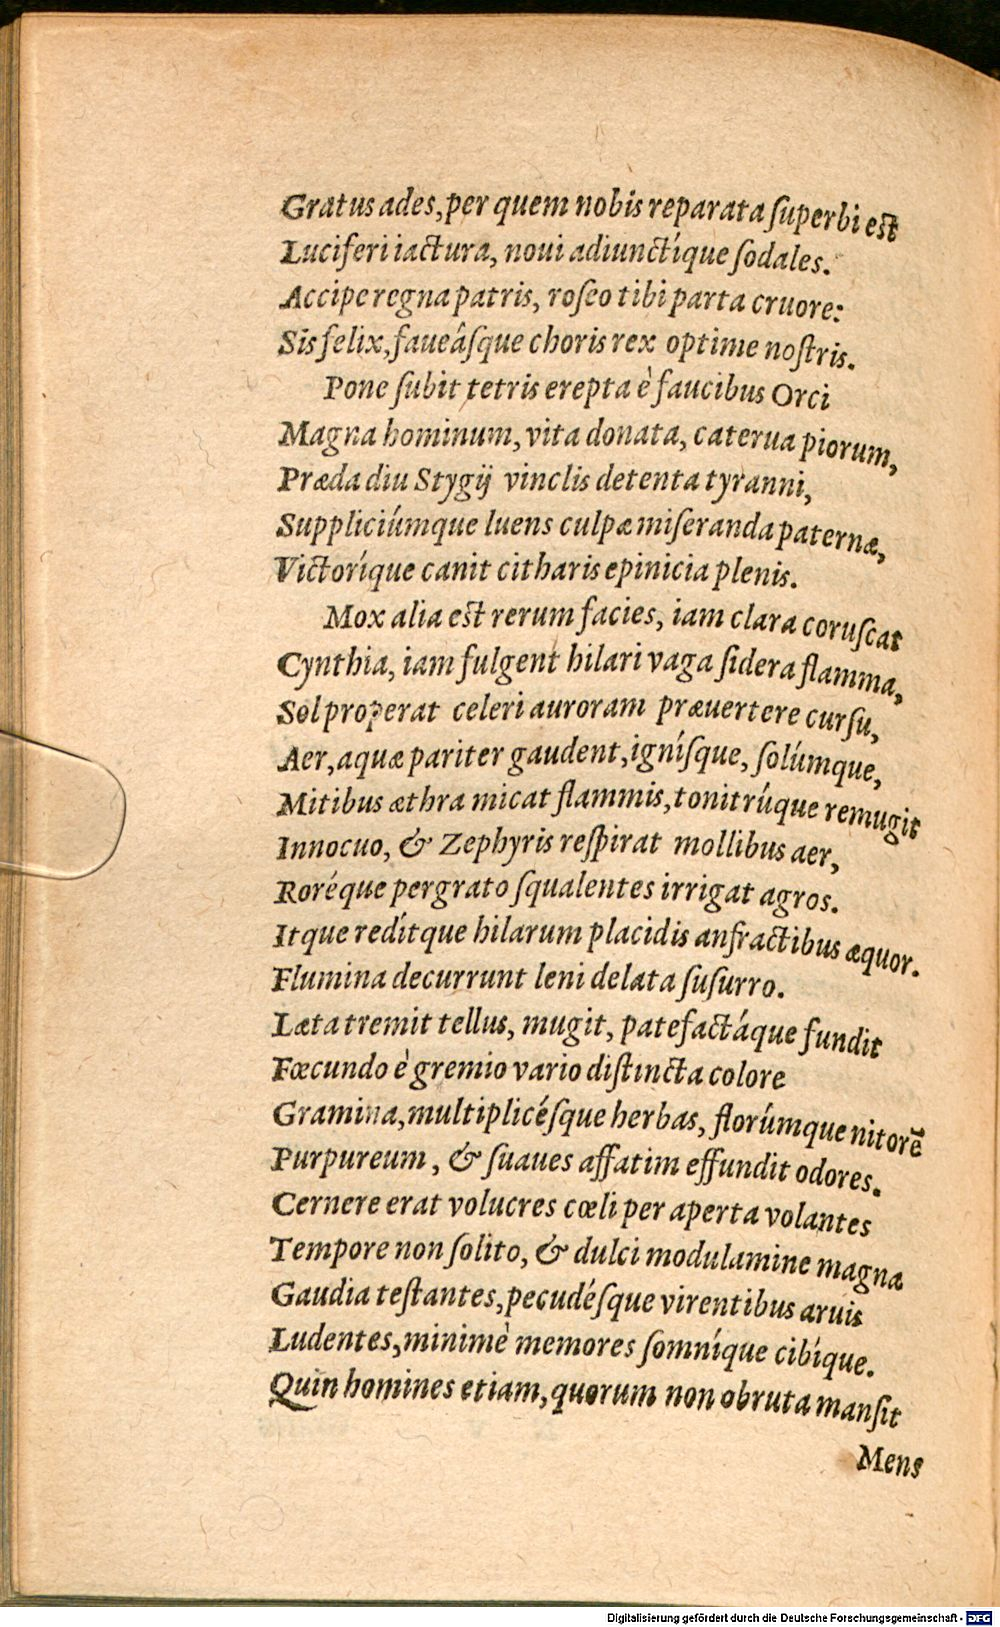 Gratus ades, per quem nobis reparata ſuperbi est
Luciferi iactura, noui adiunctíque ſodales.
Accipe regna patris, roſeo tibi parta cruore:
Sis felix, faueâſque choris rex optime noſtris.
Pone ſubit tetris erepta è faucibus Orci
Magna hominum, vita donata, caterua piorum,
Præda diu Stygij vinclis detenta tyranni,
Suppliciúmque luens culpæ miſeranda paternæ,
Victoríque canit citharis epinicia plenis.
Mox alia est rerum facies, iam clara coruſcat
Cynthia, iam fulgent hilari vaga ſidera flamma,
Sol properat celeri auroram præuertere curſu,
Aer, aquæ pariter gaudent, igníſque, ſolúmque,
Mitibus æthra micat flammis, tonitrúque remugit
Innocuo, & Zephyris reſpirat mollibus aer,
Roréque pergrato ſqualentes irrigat agros.
Itque redítque hilarum placidis anfractibus æquor.
Flumina decurrunt leni delata ſuſurro.
Læta tremit tellus, mugit, patefactáque fundit
Fœcundo è gremio vario diſtincta colore
Gramina, multiplicéſque herbas, florúmque nitorē
Purpureum, & ſuaues affatim effundit odores.
Cernere erat volucres cœli per aperta volantes
Tempore non ſolito, & dulci modulamine magna
Gaudia teſtantes, pecudéſque virentibus aruis
Ludentes, minimè memores ſomníque cibíque.
Quin homines etiam, quorum non obruta manſit
Mens
Digitalisierung gefördert durch die Deutsche Forschungsgemeinschaft - DFG